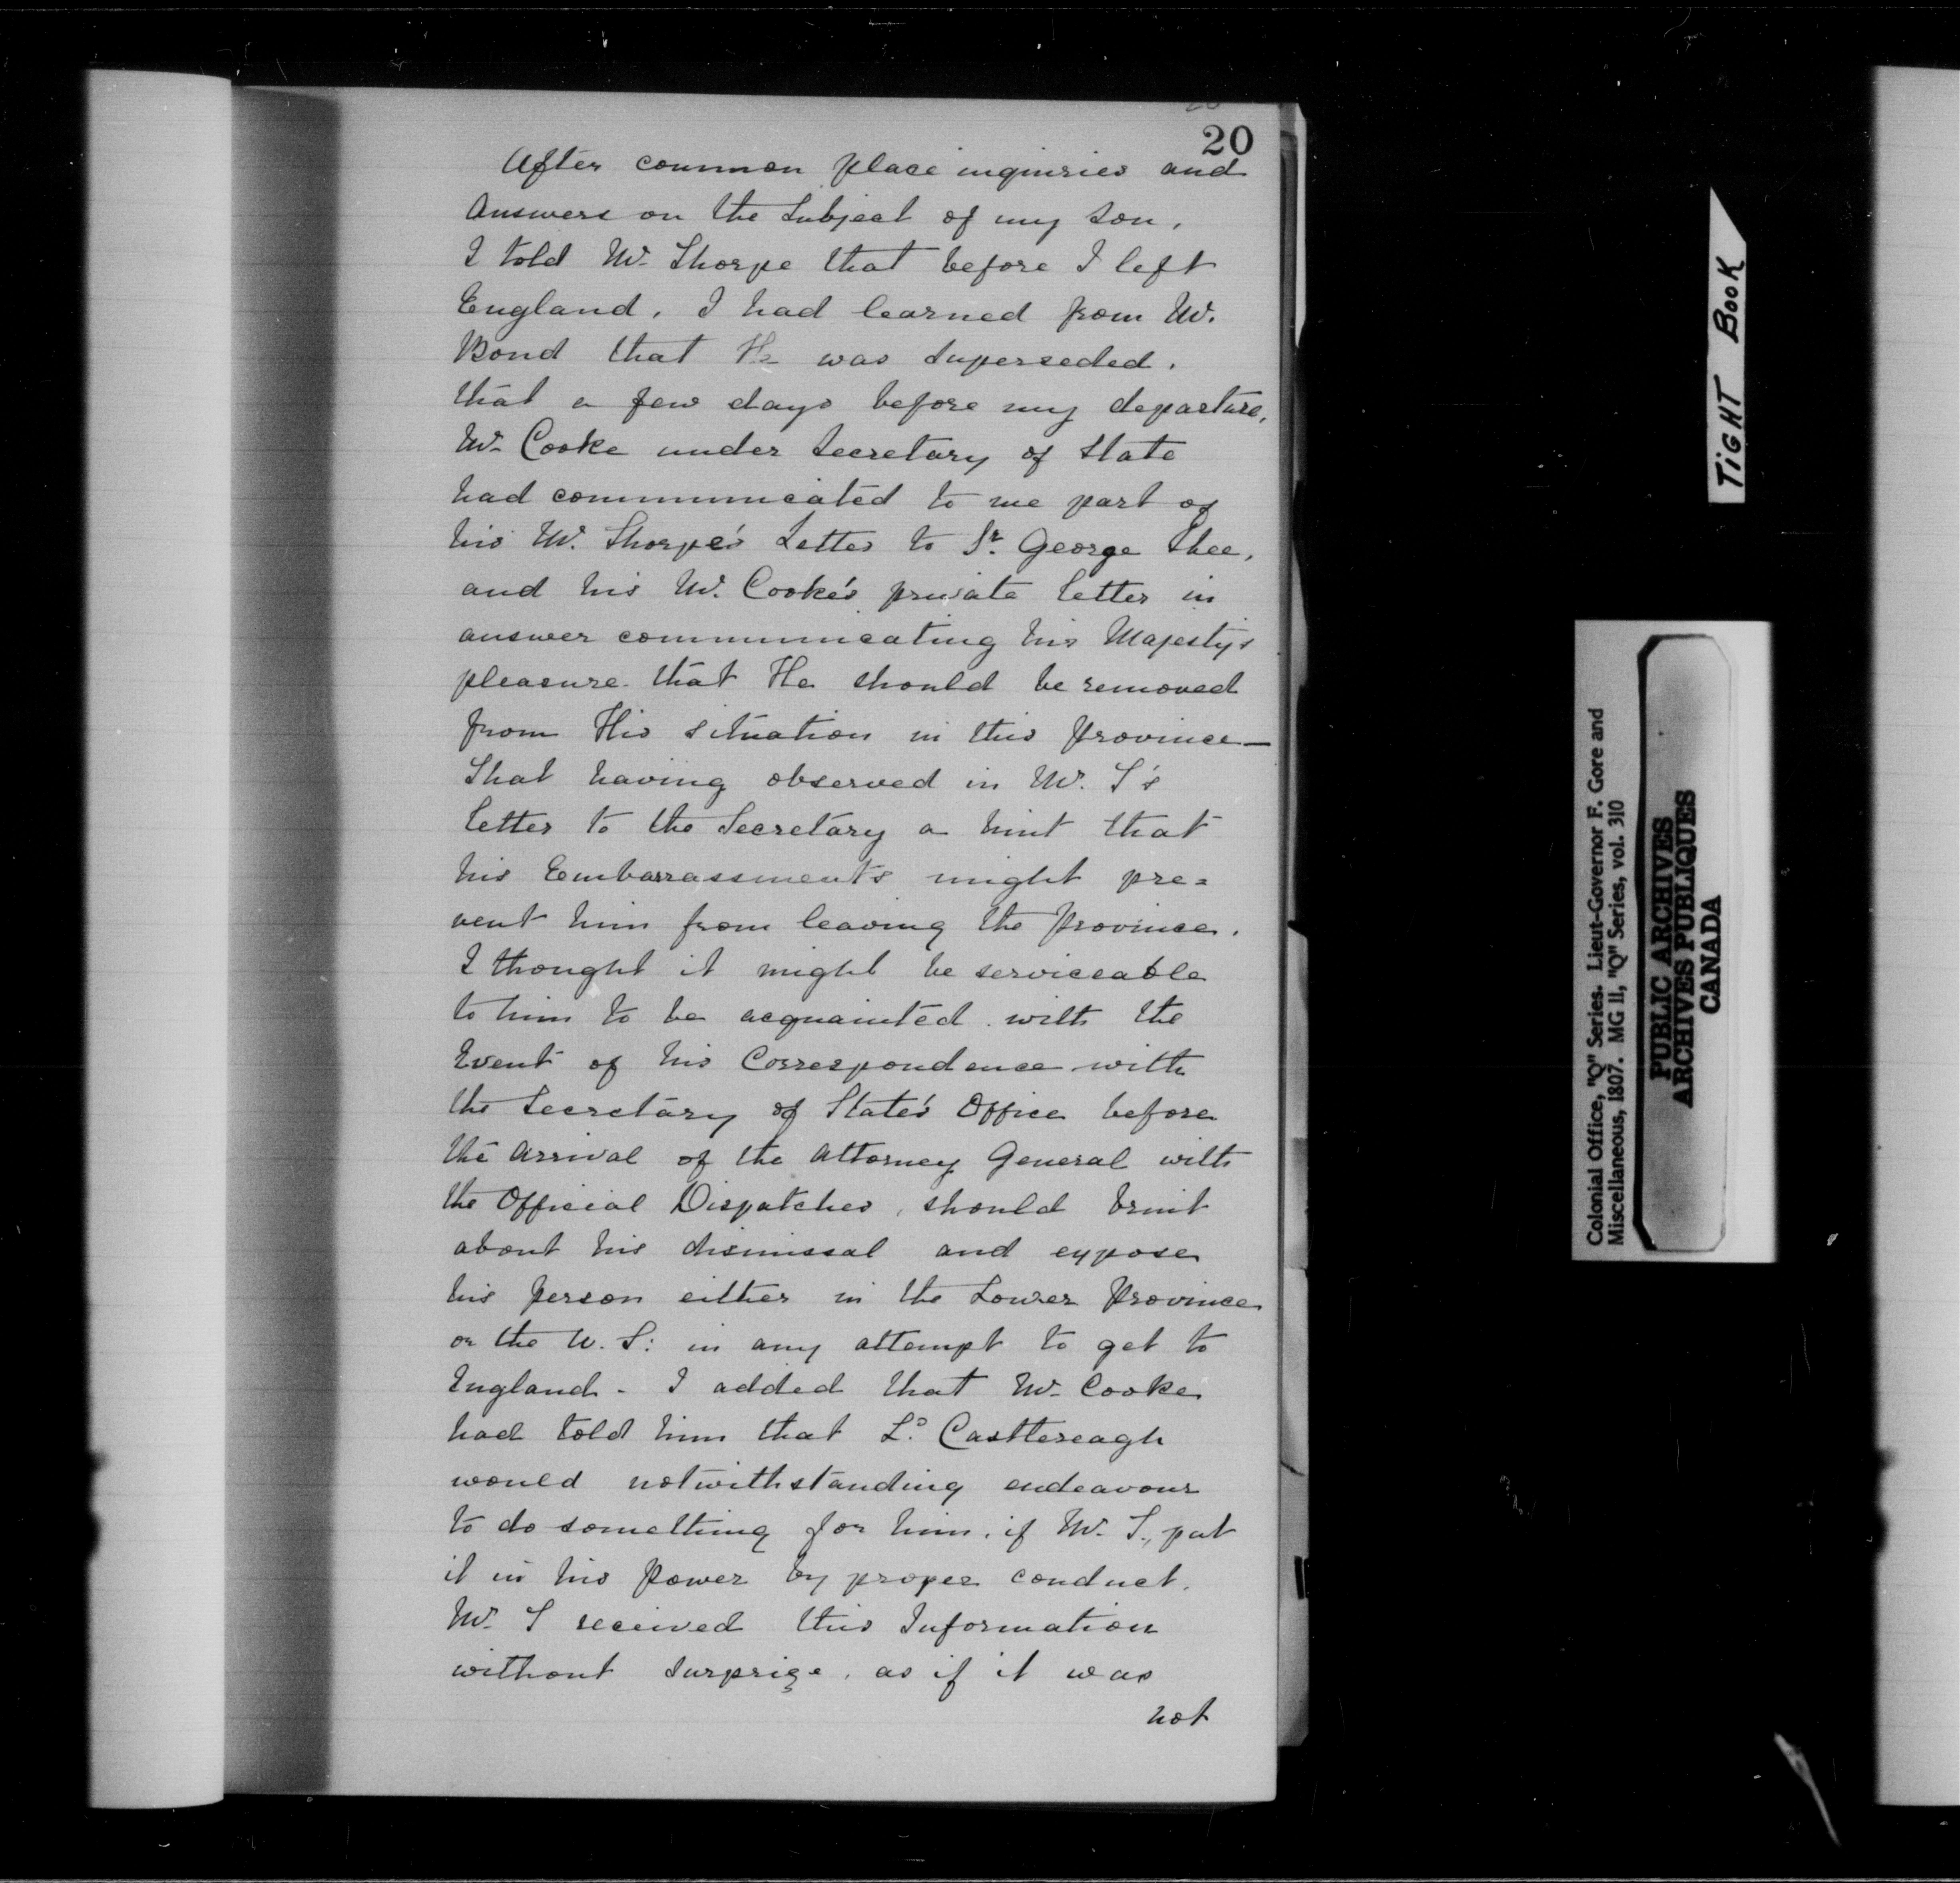 20
After common place inquiries and
Answers on the Subject of my Son,
I told Mr. Thorpe that before I left
England, I had learned from Mr.
Bond that He was Superseded,
that a few days before my departure,
Mr. Cooke under Secretary of State
had communicated to me part of
his Mr. Thorpe's Letter to Sr. George Shee,
and his Mr. Cooke's private letter in
answer communicating his Majesty's
pleasure that He should be removed
from His situation in this Province—
That having observed in Mr. T's
letter to the Secretary a hint that
his Embarrassments might pre=
vent him from leaving the Province,
I thought it might be serviceable
to him to be acquainted with the
Event of his Correspondence with
the Secretary of State's Office before
the arrival of the Attorney General with
the Official Dispatches, should bruit
about his dismissal and expose
his person either in the Lower Province
or the U. S: in any attempt to get to
England - I added that Mr. Cooke
had told him that Ld. Castlereagh
would notwithstanding endeavour
to do something for him, if Mr. T., put
it in his Power by proper conduct.
Mr. T received this Information
without Surprize, as if it was
not
TIGHT BOOK
Colonial Office, "Q" Series. Lieut-Governor F. Gore and
Miscellaneous, 1807. MG 11, "Q" Series, vol. 310
PUBLIC ARCHIVES
ARCHIVES PUBLIQUES
CANADA